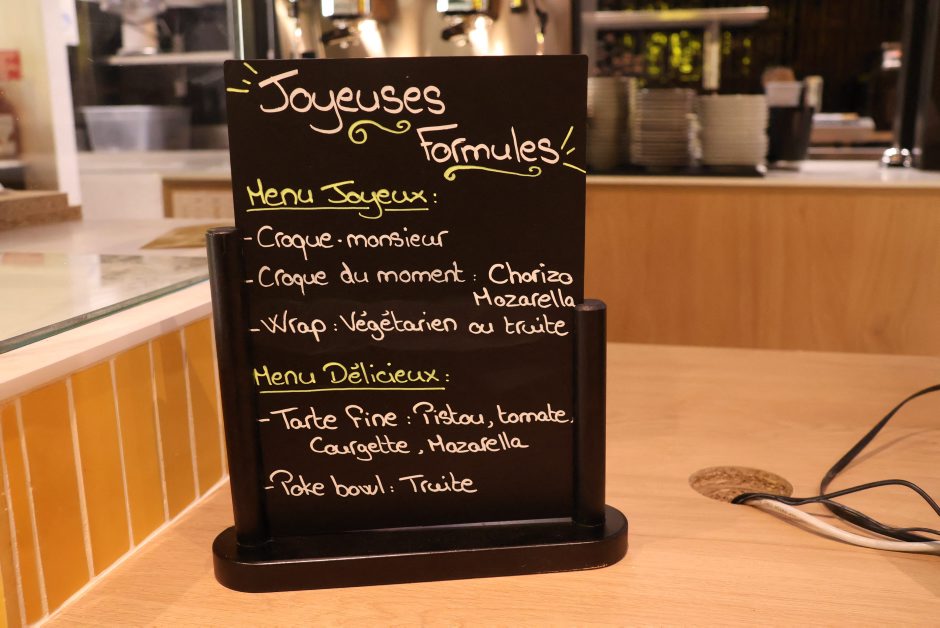 Joyeuses
Formules
Menu Joyeux :
- Croque-monsieur
- Croque du moment : Chorizo
Mozarella
- Wrap : Végétarien ou truite
Menu Délicieux :
- Tarte fine : Pistou, tomate,
Courgette, Mozarella
- Poke bowl : Truite